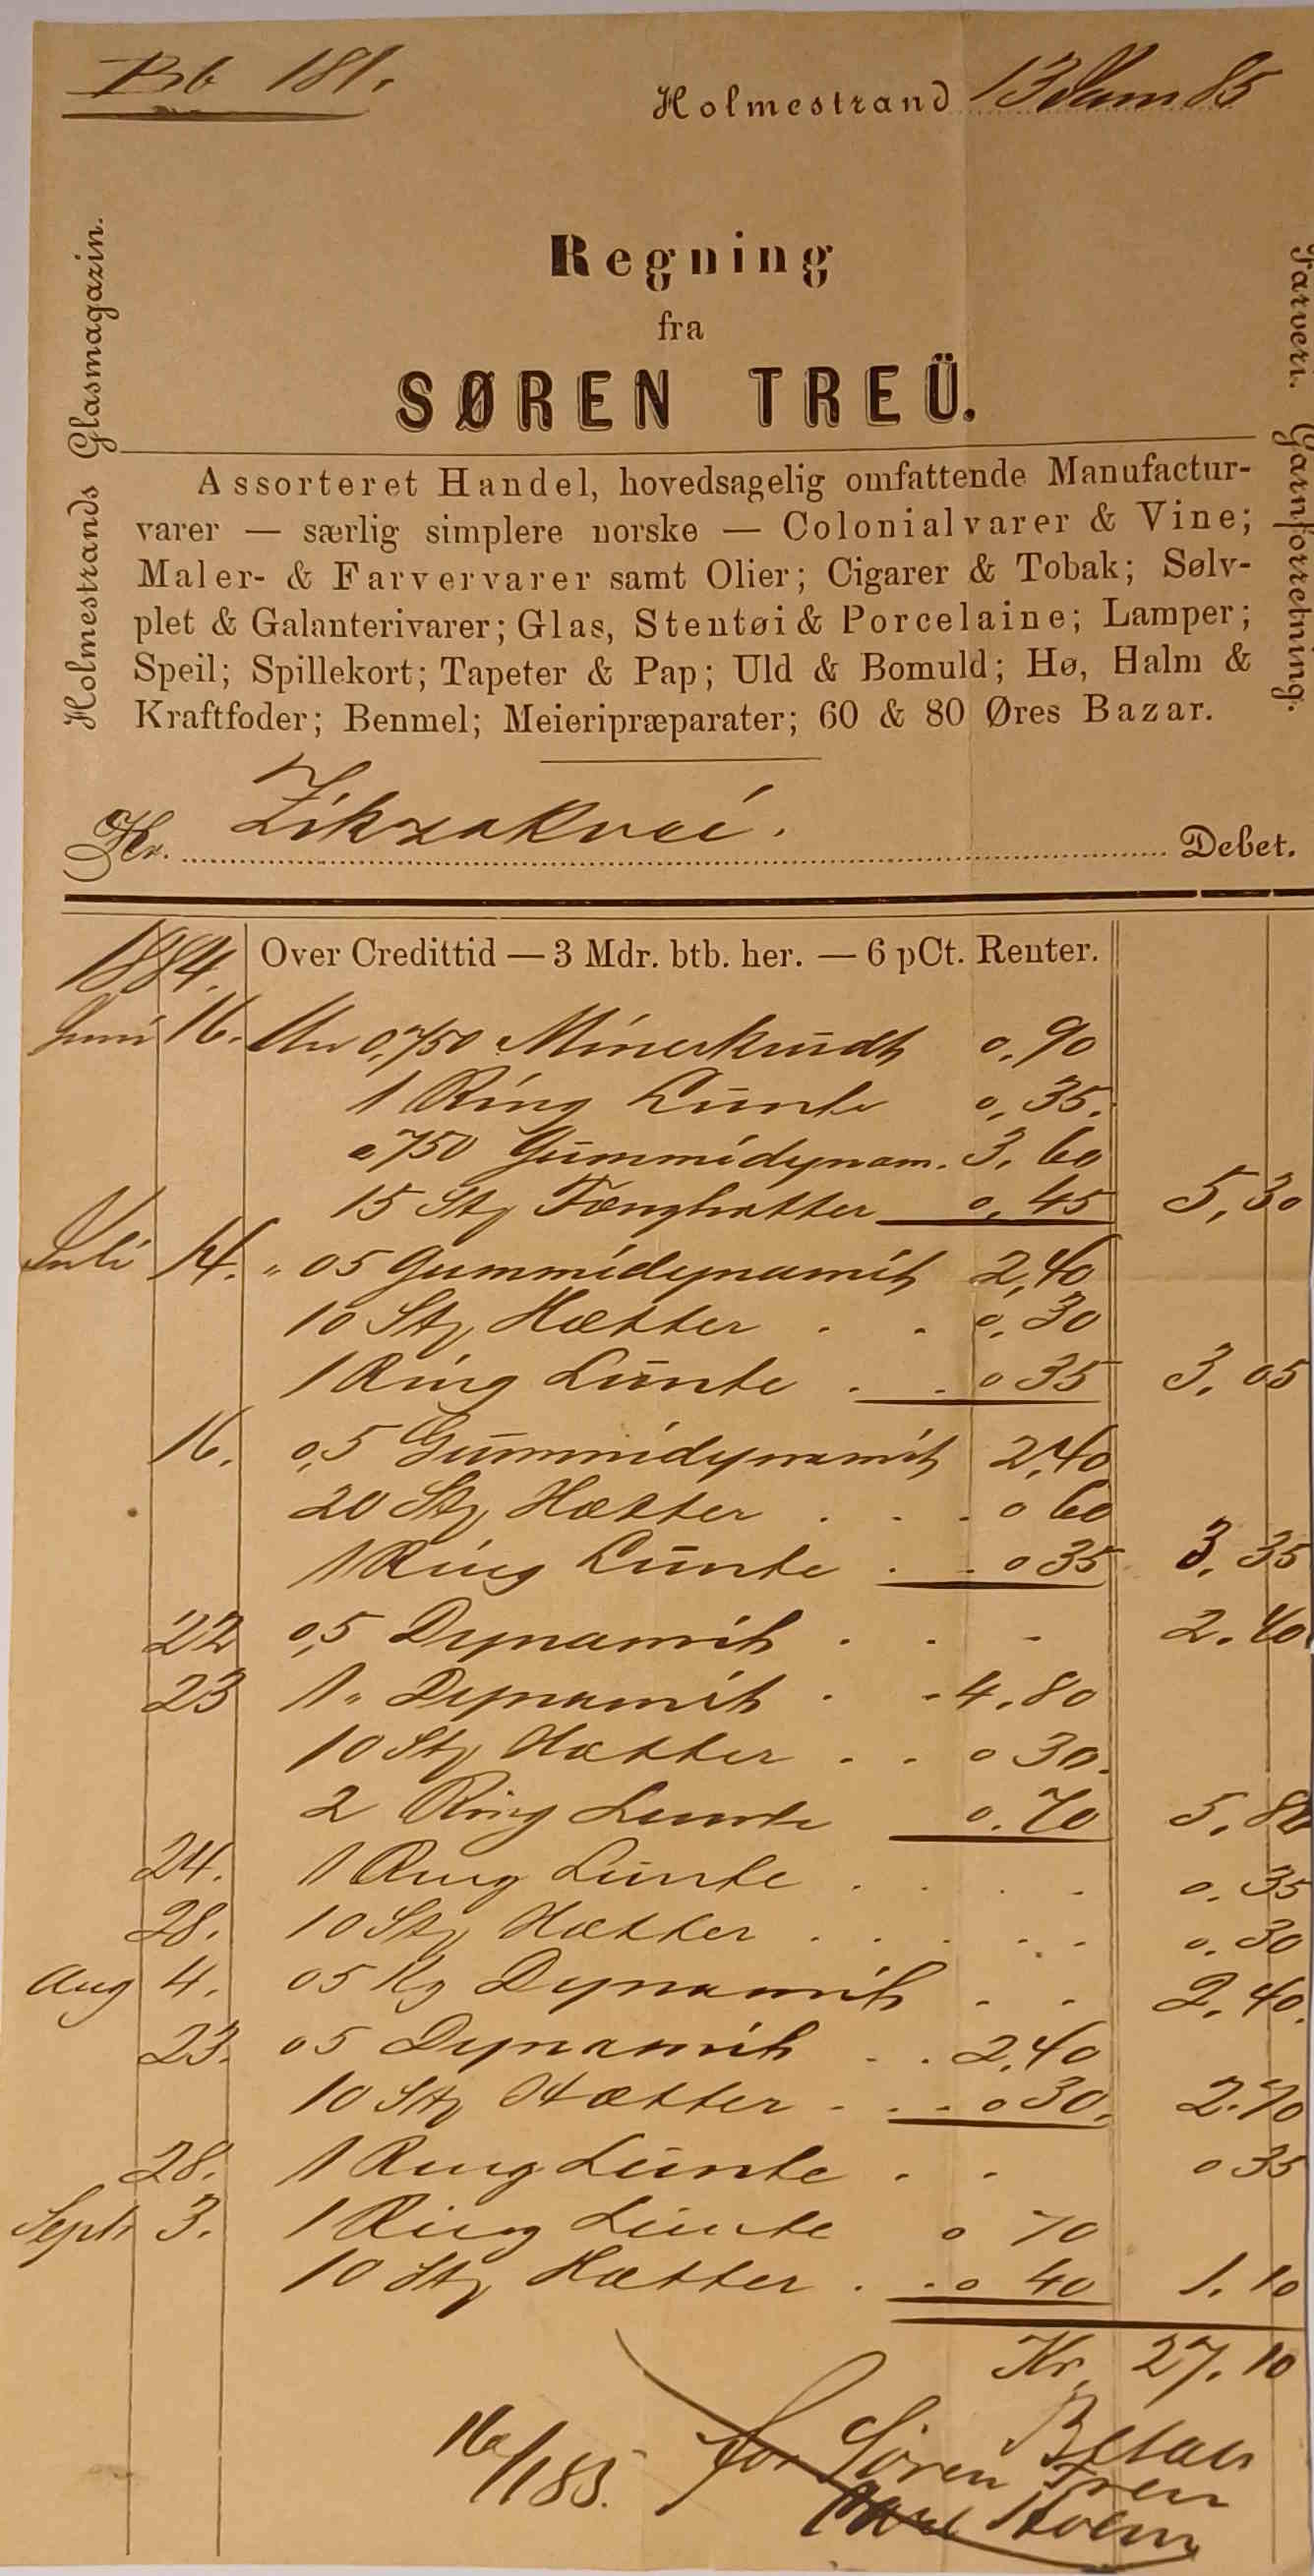 Bb 181.
Holmestrand 13 Jam 85
Holmestrands Glasmagazin.
Farveri. Garnforretning.
Regning
fra
SØREN TREÜ.
Assorteret Handel, hovedsagelig omfattende Manufactur-
varer — særlig simplere norske — Colonialvarer & Vine;
Maler- & Farvervarer samt Olier; Cigarer & Tobak; Sølv-
plet & Galanterivarer; Glas, Stentøi & Porcelaine; Lamper;
Speil; Spillekort; Tapeter & Pap; Uld & Bomuld; Hø, Halm &
Kraftfoder; Benmel; Meieripræparater; 60 & 80 Øres Bazar.
Hr. Zikzakvei. Debet.
1884. Over Credittid — 3 Mdr. btb. her. — 6 pCt. Renter.
Juni 16. 0,750 Minerkrudt 0,90
1 Ring Lunte 0,35.
0750 Gummidynam. 3,60
15 Stg Fænghætter 0,45 5,30
Juli 14. " 05 Gummidynamit 2,40
10 Stg Hætter . . 0,30
1 Ring Lunte . . 0 35 3,05
16. 0,5 Gummidynamit 2,40
20 Stg Hætter . . . 0 60
1 Ring Lunte . . 0 35 3,35
22 0,5 Dynamit . . . 2.40
23 1 " Dynamit . . 4.80
10 Stg Hætter . . 0 30.
2 Ring Lunte 0.70 5,80
24. 1 Ring Lunte . . . . 0.35
28. 10 Stg Hætter . . . . . 0.30
Aug 4. 05 Kg Dynamit . . 2,40.
23. 05 Dynamit . . 2,40
10 Stg Hætter . . . 0 30. 2.70
28. 1 Ring Lunte . . 0 35
Septr 3. 1 Ring Lunte 0 70
10 Stg Hætter . . 0 40 1.10
Kr. 27.10
Betalt
16/1 85. for Søren Treu
Carl Holm